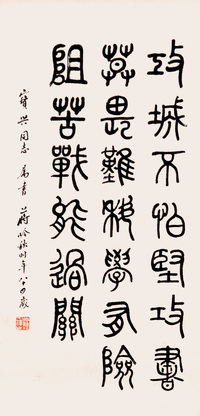 攻城不怕堅攻書
莫畏難科學有險
阻苦戰能過關
寶興同志屬書 蔣吟秋時年八十四歲